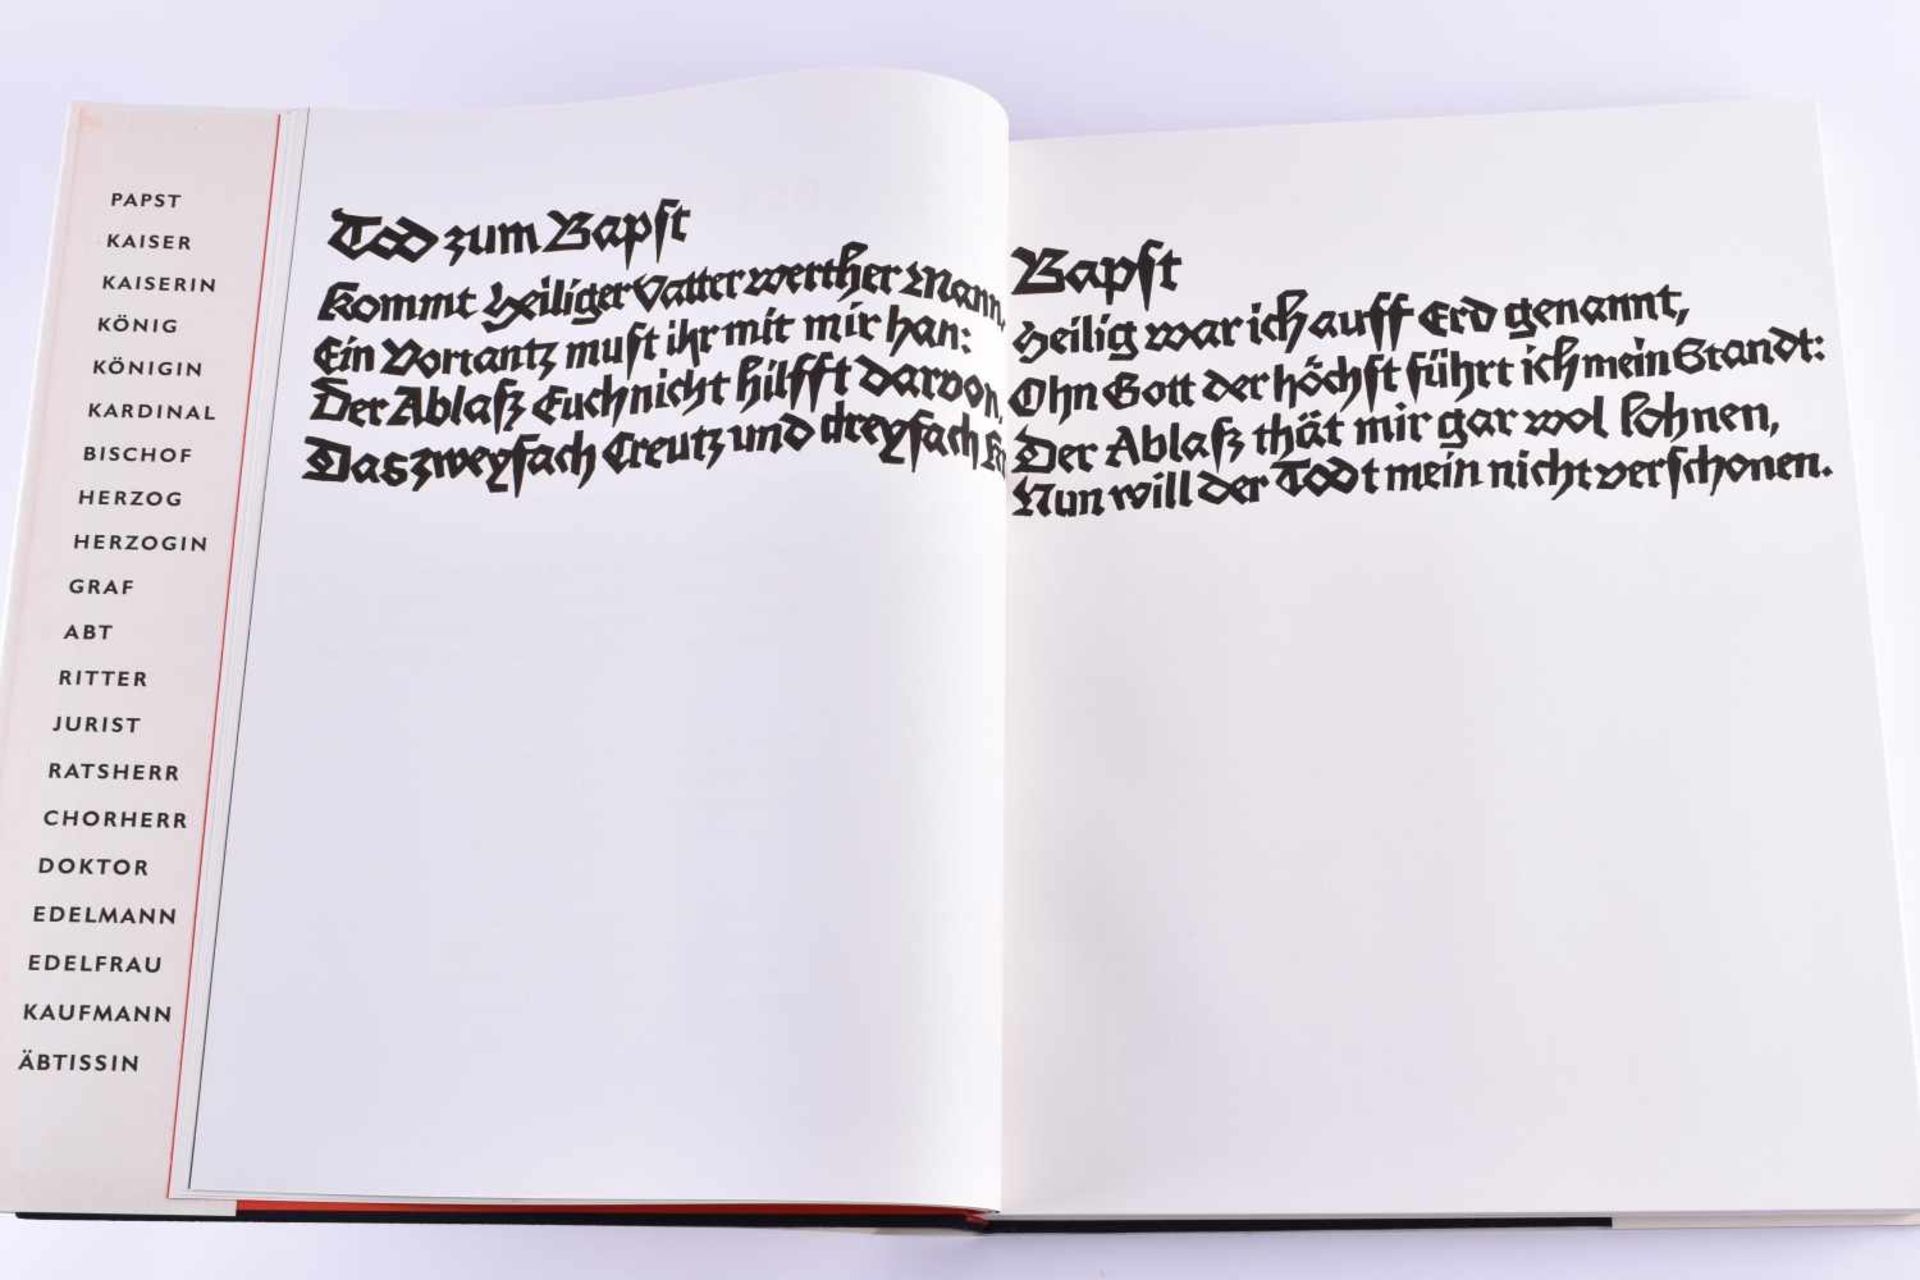 PAPST
KAISER
KAISERIN
KÖNIG
KÖNIGIN
KARDINAL
BISCHOF
HERZOG
HERZOGIN
GRAF
ABT
RITTER
JURIST
RATSHERR
CHORHERR
DOKTOR
EDELMANN
EDELFRAU
KAUFMANN
ÄBTISSIN
Tod zum Bapſt
Kommt Heiliger Vatter werther Mann,
Ein Vortantz muſt ihr mit mir han:
Der Ablaſz Euch nicht hilfft darvon,
Das zweyfach Creutz und dreyfach
Bapſt
Heilig war ich auff Erd genannt,
Ohn Gott der höchſt führt ich mein Standt:
Der Ablaſz thät mir gar wol lohnen,
Nun will der Todt mein nicht verſchonen.